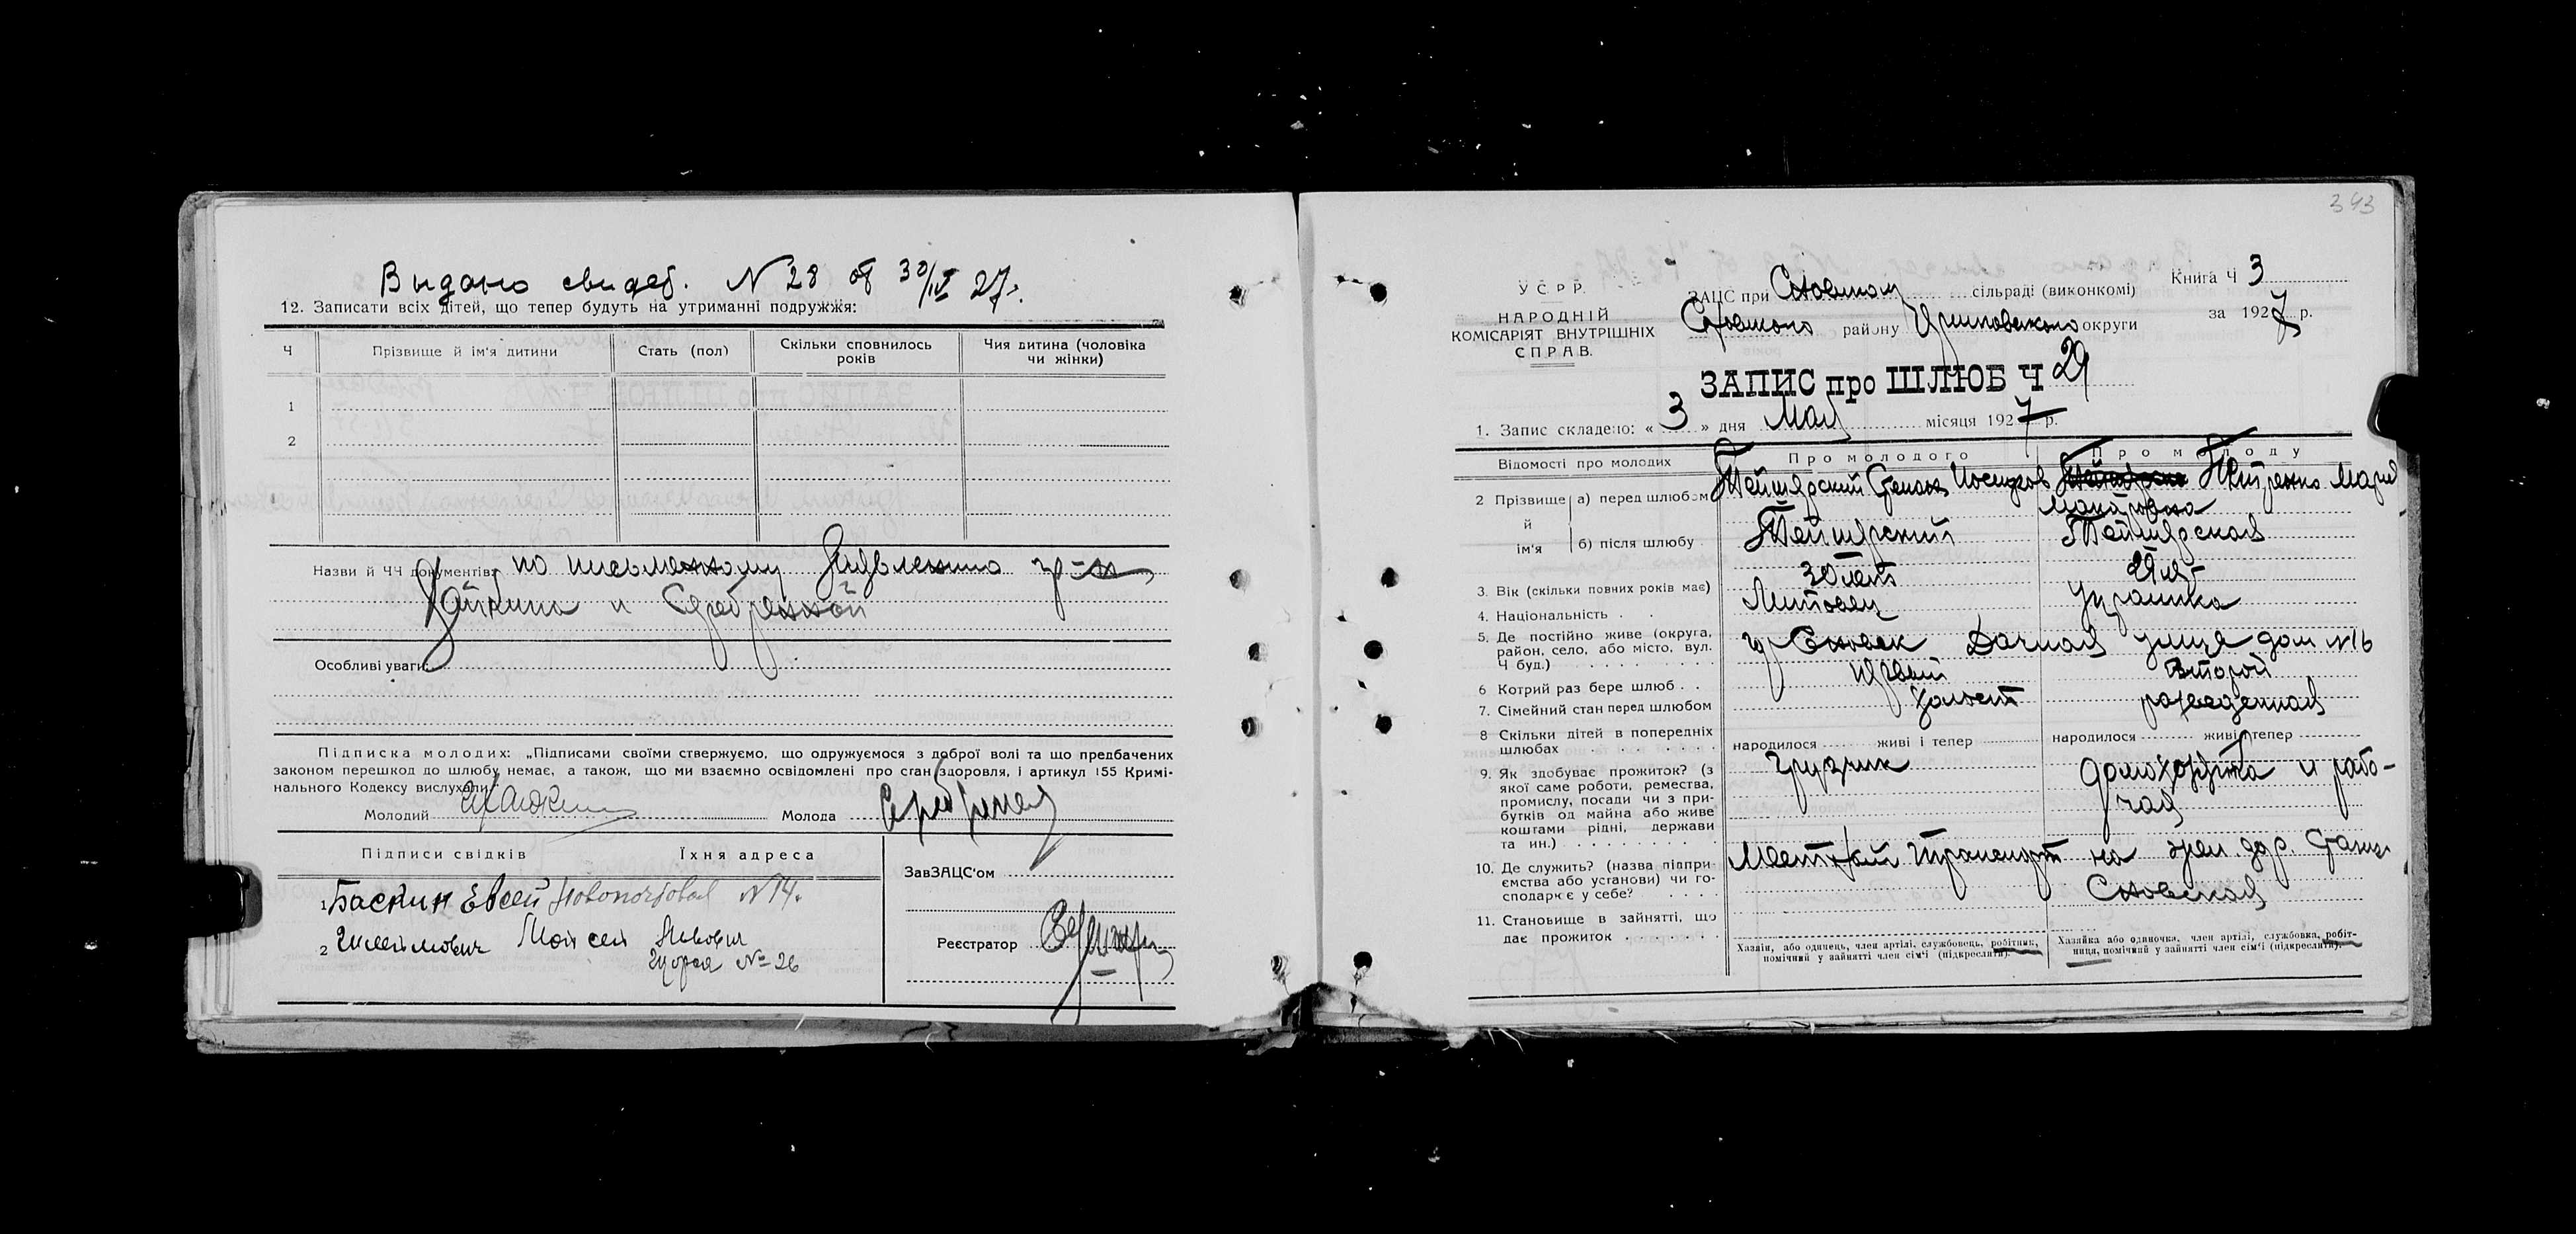 Выдано свидет. N 28 от 30/IV 27 г.
12. Записати всіх дітей, що тепер будуть на утриманні подружжя:
Ч Прізвище й ім'я дитини Стать (пол) Скільки сповнилось років Чия дитина (чоловіка чи жінки)
1
2
Назви й ЧЧ документів: по письменному заявлению гр-н
Зайкина и Серебряной
Особливі уваги:
Підписка молодих: „Підписами своїми стверджуємо, що одружуємося з доброї волі та що предбачених
законом перешкод до шлюбу немає, а також, що ми взаємно освідомлені про стан здоровля, і артикул 155 Кримі-
нального Кодексу вислухали."
Молодий Молода
Підписи свідків Їхня адреса
1 Баскин Евсей N 14.
2 Моисей
№ 26
ЗавЗАЦС'ом
Реєстратор
343
У С Р Р.
НАРОДНІЙ
КОМІСАРІЯТ ВНУТРІШНІХ
СПРАВ.
ЗАЦС при Сновском сільраді (виконкомі)
Сновского району округи
Книга Ч 3
за 1927 р.
ЗАПИС про ШЛЮБ Ч 29
1. Запис складено: « 3 » дня Мая місяця 1927 р.
Відомості про молодих Про молодого Про молоду
2 Прізвище й ім'я а) перед шлюбом Петренко Мария
б) після шлюбу
3. Вік (скільки повних років має) 30 лет 29 лет
4. Національність Литовец Украинка
5. Де постійно живе (округа, район, село, або місто, вул. Ч буд.) г. Сновск Дачная улица дом N 16
6 Котрий раз бере шлюб первый второй
7. Сімейний стан перед шлюбом холост разведенная
8 Скільки дітей в попередніх шлюбах народилося живі і тепер народилося живі і тепер
9. Як здобуває прожиток? (з якої саме роботи, ремества, промислу, посади чи з прибутків од майна або живе коштами рідні, держави та ин.) грузчик домохозяйка и рабо-
чая
10. Де служить? (назва підпри-
ємства або установи) чи го-
сподарює у себе? Местный транспорт на жел. дор. станц.
Сновская
11. Становище в зайнятті, що
дає прожиток
Хазяїн, або одинець, член артілі, службовець, робітник,
помічний у зайнятті член сім'ї (підкреслити).
Хазяйка або одиночка, член артілі, службовка, робіт-
ниця, помічний у зайнятті член сім'ї (підкреслити).